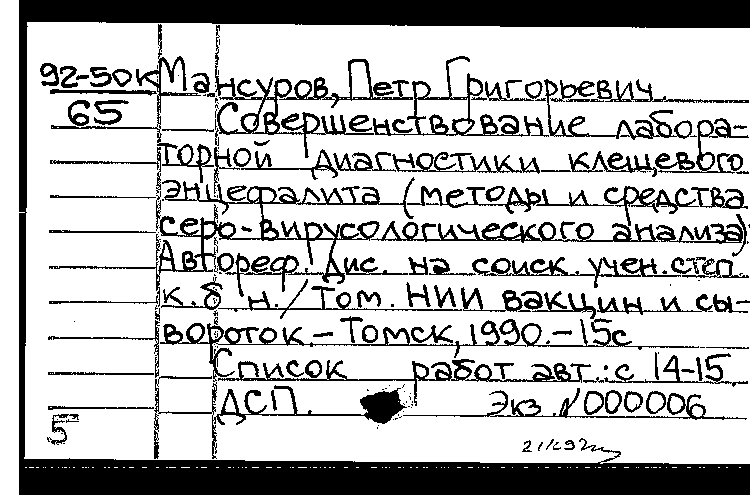 92-50к Мансуров, Петр Григорьевич.
65 Совершенствование лабора-
торной диагностики клещевого
энцефалита (методы и средства
серо-вирусологического анализа):
Автореф. дис. на соиск. учен. степ.
к. б. н. / Том. НИИ вакцин и сы-
вороток. – Томск, 1990. – 15с.
Список работ авт.: с 14-15
ДСП. Экз. N000006
5